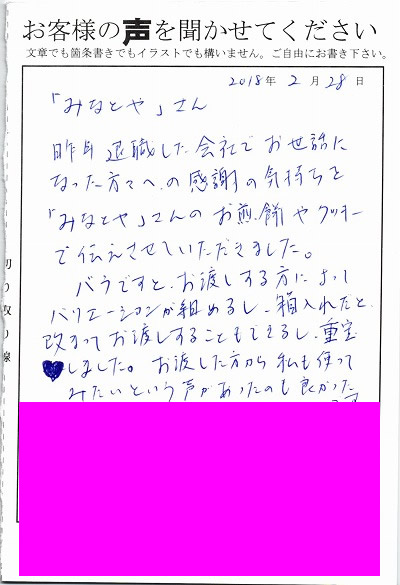 お客様の声を聞かせてください
文章でも箇条書きでもイラストでも構いません。ご自由にお書き下さい。
2018年 2月 28日
「みなとや」さん
昨年退職した会社でお世話に
なった方々への感謝の気持ちを
「みなとや」さんのお煎餅やクッキー
で伝えさせていただきました。
バラですと、お渡しする方によって
バリエーションが組めるし、箱入れだと
改まってお渡しすることもできるし、重宝
しました。お渡した方から私も使って
みたいという声があったのも良かった
切り取り線